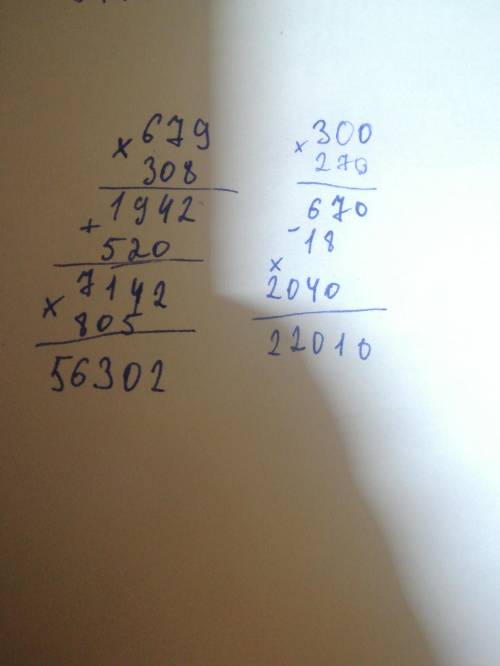 × 679
308
1942
+
520
7142
× 805
56302
× 300
270
670
- 18
×
2040
22010